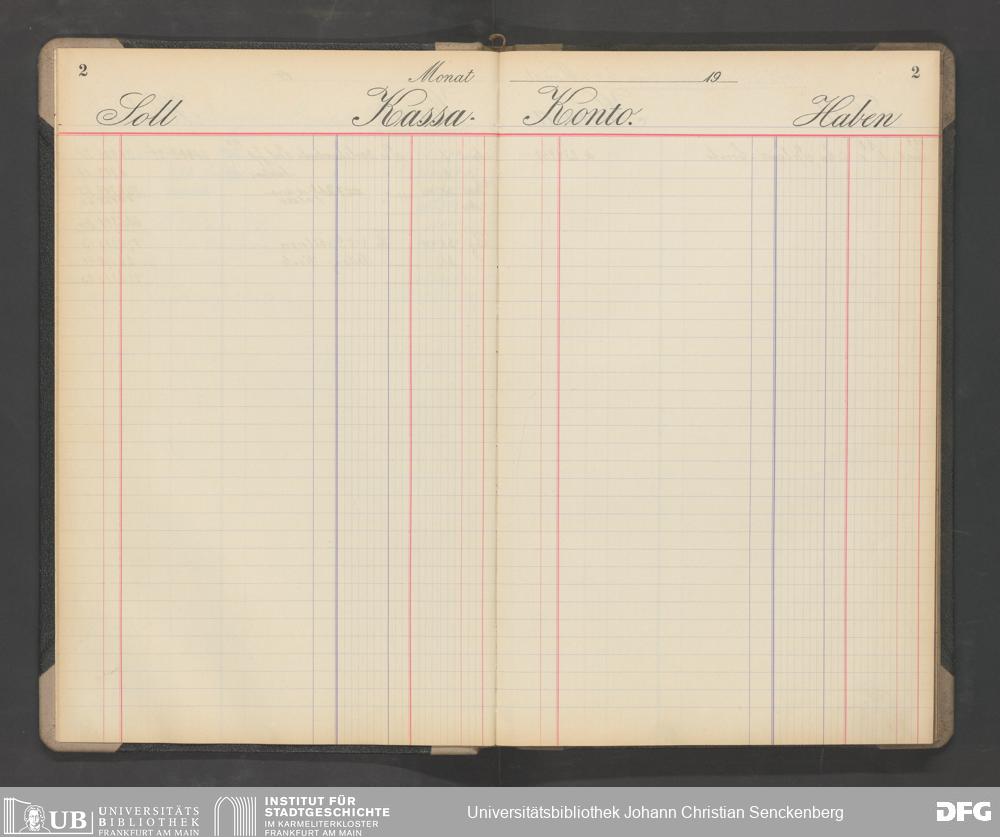 2
Monat 19
2
Soll Kassa- Konto. Haben
UB UNIVERSITÄTS
BIBLIOTHEK
FRANKFURT AM MAIN
INSTITUT FÜR
STADTGESCHICHTE
IM KARMELITERKLOSTER
FRANKFURT AM MAIN
Universitätsbibliothek Johann Christian Senckenberg
DFG